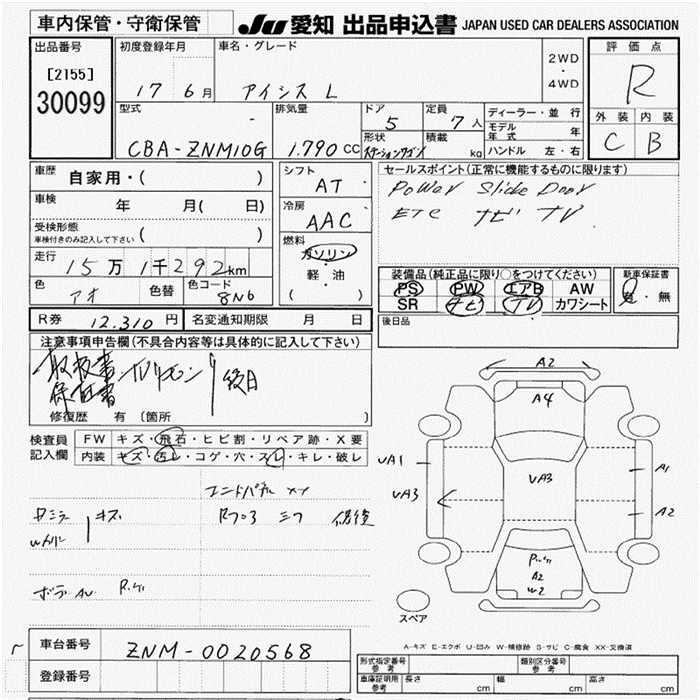 車内保管・守衛保管
JU 愛知 出品申込書 JAPAN USED CAR DEALERS ASSOCIATION
出品番号
[2155]
30099
初度登録年月
17 6月
車名・グレード
アイシス L
2WD
・
4WD
評価点
R
外装 内装
C B
型式
CBA-ZNM10G
排気量
1.790 CC
ドア
5
定員
7人
形状
ステーションワゴン
積載
kg
ディーラー・並行
モデル年式 年
ハンドル 左・右
車歴 自家用・( )
車検 年 月( 日)
受検形態
車検付きのみ記入して下さい ( )
走行 15万1千292km
色 アオ 色替 色コード 8N6
シフト
AT
冷房
AAC
燃料
ガソリン
・
軽・油
( )
セールスポイント(正常に機能するものに限ります)
Power Slide Door
ETC ナビ TV
装備品(純正品に限り○をつけてください)
PS PW エアB AW
SR ナビ TV カワシート
新車保証書
有・無
R券 12.310円 名変通知期限 月 日
後日品
注意事項申告欄(不具合内容等は具体的に記入して下さい)
取扱書・
保証書
リモコン
後日
修復歴 有 〔箇所 〕
検査員
記入欄
FW キズ・飛石・ヒビ割・リペア跡・X要
内装 キズ・汚レ・コゲ・穴・スレ・キレ・破レ
エンドパネル XX
キズ
Rフロア
修復
A2
A4
UA1
UA3
UA3
A1
A2
A2
W2
スペア
A-キズ E-エクボ U-凹み W-補修跡 S-サビ C-腐食 XX-交換済
車台番号 ZNM-0020568
登録番号
形式指定番号
参考
類別区分番号
参考
車庫証明用
参考
長さ cm 幅 cm 高さ cm